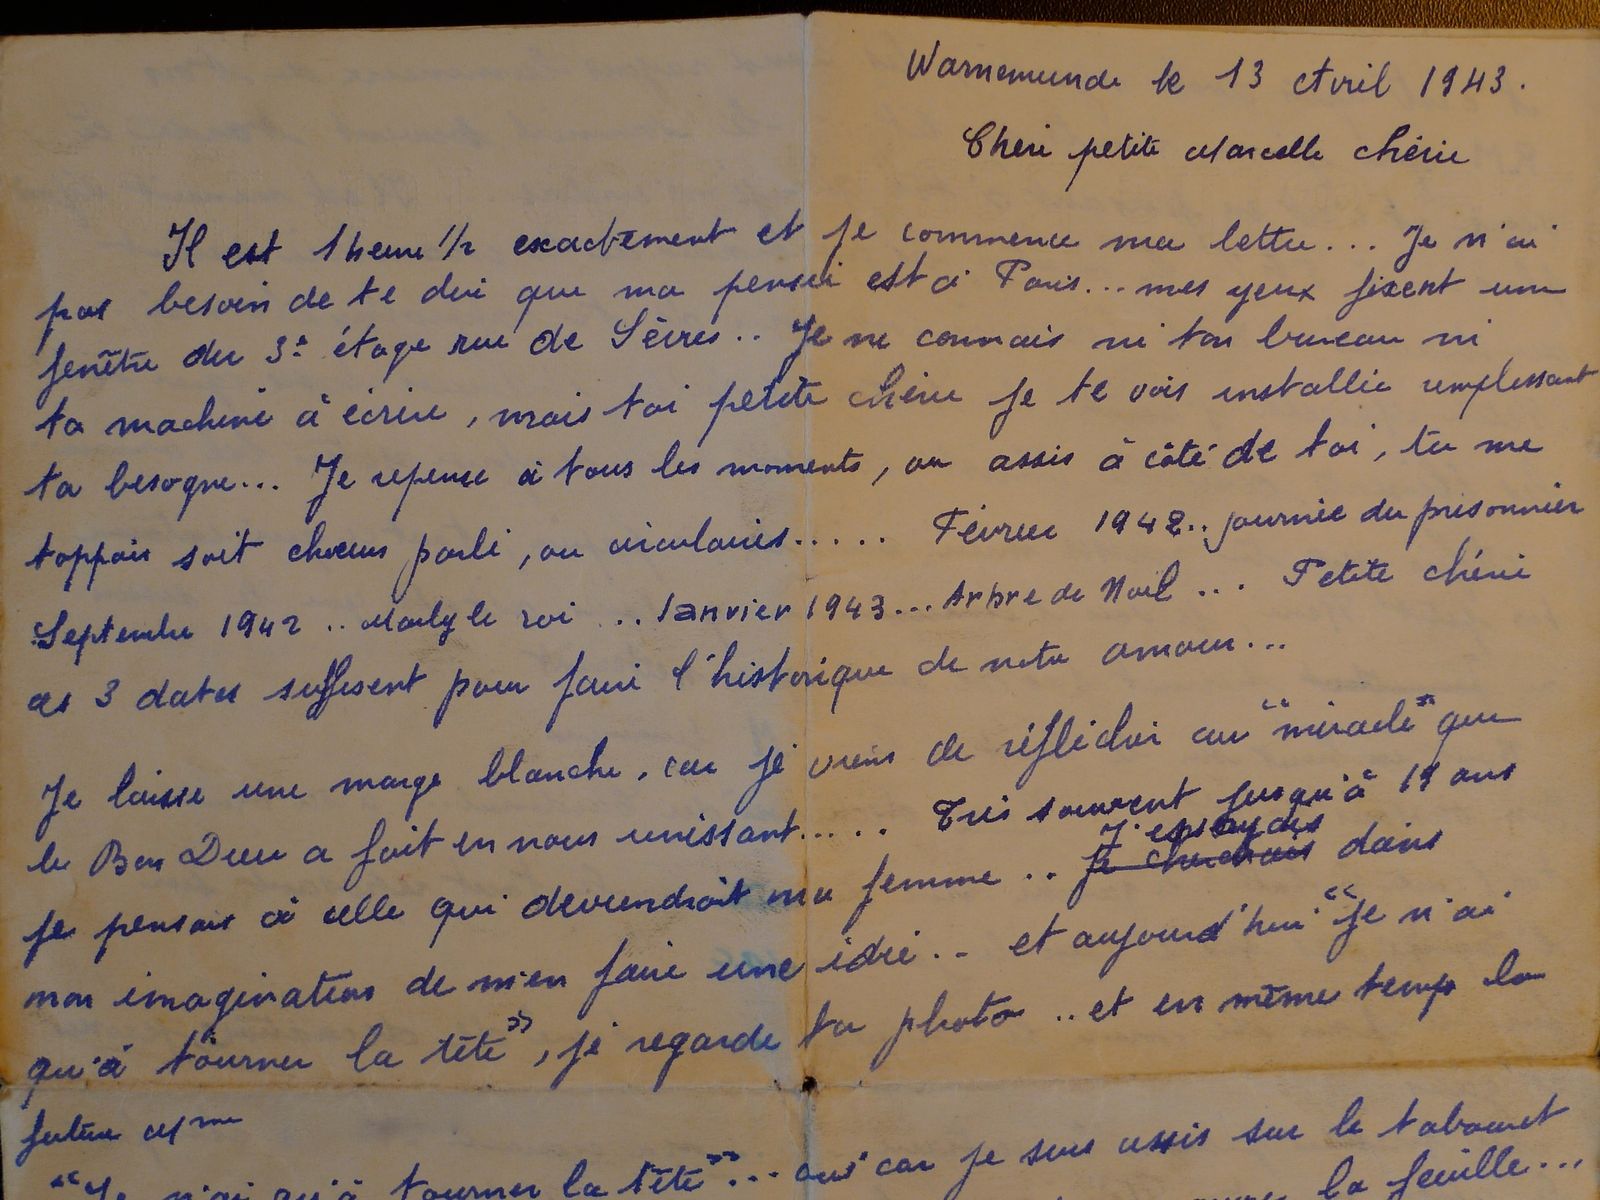 Warnemunde le 13 Avril 1943.
Chérie petite Marcelle chérie
Il est 1 heure 1/2 exactement et je commence ma lettre... Je n'ai
pas besoin de te dire que ma pensée est à Paris... mes yeux fixent une
fenêtre du 3e étage rue de Sèvres.. Je ne connais ni ton bureau ni
ta machine à écrire, mais toi petite chérie je te vois installée remplissant
ta besogne... Je repense à tous les moments, ou assis à côté de toi, tu me
tappais soit chœurs parlé, ou circulaires..... Février 1942.. journée du prisonnier
Septembre 1942.. Marly le roi ... Janvier 1943... Arbre de Noël... Petite chérie
ces 3 dates suffisent pour faire l'historique de notre amour...
Je laisse une marge blanche, car je viens de réfléchir au "miracle" que
le Bon Dieu a fait en nous unissant..... Très souvent jusqu'à 19 ans
je pensais à celle qui deviendrait ma femme.. je cherchais J'essayais dans
mon imagination de m'en faire une idée.. et aujourd'hui "Je n'ai
qu'à tourner la tête", je regarde ta photo.. et en même temps la
future Mme
"Je n'ai qu'à tourner la tête"... oui car je suis assis sur le tabouret
la feuille...